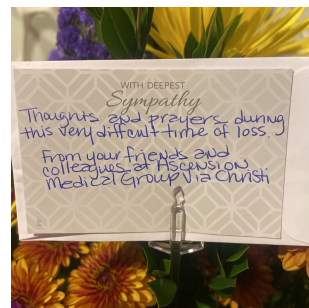 WITH DEEPEST
Sympathy
Thoughts and prayers during
this very difficult time of loss.
From your friends and
colleagues at Ascension
Medical Group Via Christi